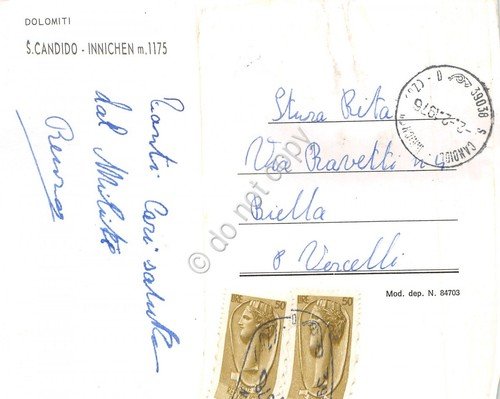 DOLOMITI
S.CANDIDO - INNICHEN m.1175
Tanti Cari saluti
dal
Stura Rita
Via Ravetti n 4
Biella
Vercelli
39038 S. CANDIDO
Mod. dep. N. 84703
LIRE 50
LIRE 50
© do not copy